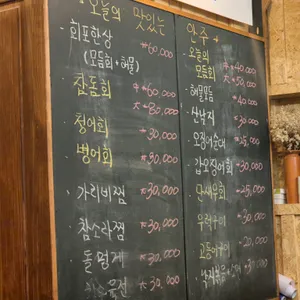 오늘의 맛있는 안주
회포한상 60,000
(모듬회+해물)
참돔회 60,000
80,000
청어회 30,000
병어회 30,000
가리비찜 30,000
참소라찜 30,000
돌멍게 30,000
30,000
오늘의
모듬회 40,000
50,000
해물모듬 40,000
산낙지 30,000
오징어순대
갑오징어회 30,000
단새우회 35,000
우럭구이 30,000
고등어구이 20,000
30,000